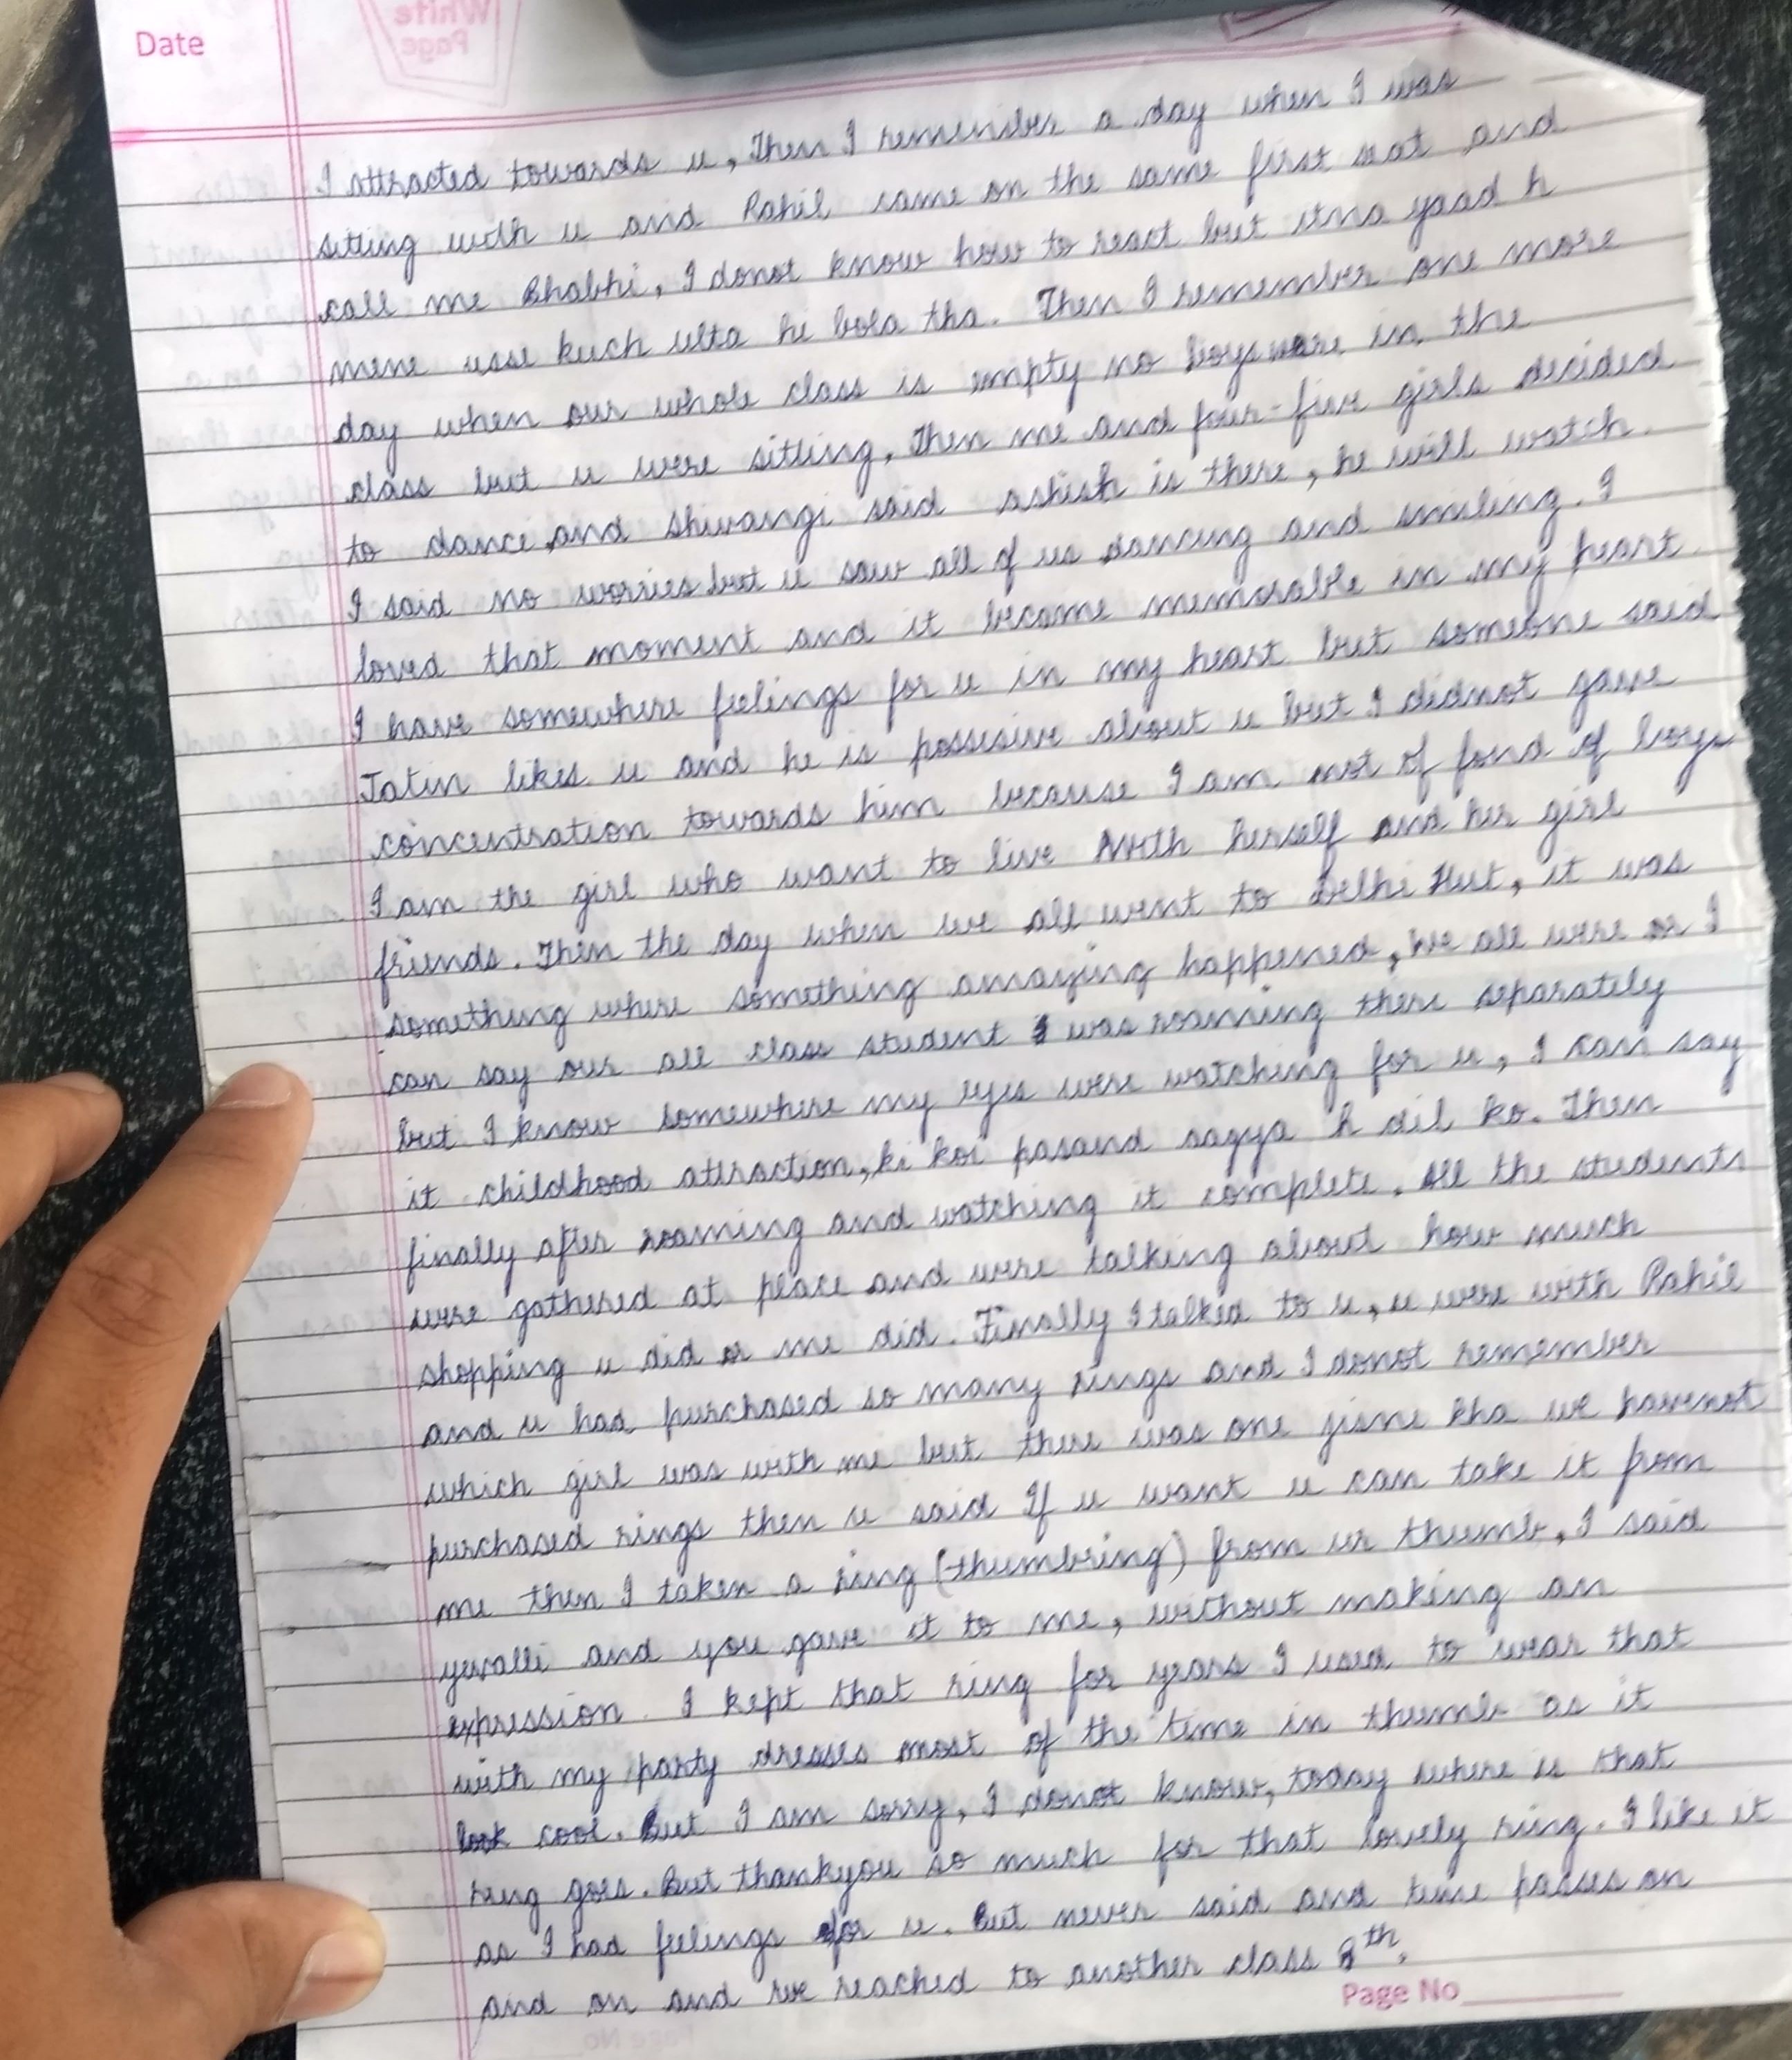 Date
White Page
I attracted towards u, Then I remember a day when I was
sitting with u and Rahil came on the same first seat and
call me Bhabhi, I donot know how to react but itna yaad h
mene usse kuch ulta he bola tha. Then I remember one more
day when our whole class is empty no boys were in the
class but u were sitting, Then me and four-five girls decided
to dance and Shivangi said ashish is there, he will watch.
I said no worries but u saw all of us dancing and smiling. I
loved that moment and it became memorable in my heart.
I have somewhere feelings for u in my heart but someone said
Jatin likes u and he is possesive about u but I didnot gave
concentration towards him because I am not of fond of boys
I am the girl who want to live with herself and her girl
friends. Then the day when we all went to Delhi Hut, it was
something where something amazing happened, we all were or I
can say our all class student I was roaming there separately
but I know somewhere my eyes were watching for u, I can say
it childhood attraction, ki koi pasand aagya h dil ko. Then
finally after roaming and watching it complete. All the students
were gathered at place and were talking about how much
shopping u did or me did. Finally I talked to u, u were with Rahil
and u had purchased so many rings and I donot remember
which girl was with me but there was one jisne kha we havenot
purchased rings then u said If u want u can take it from
me then I taken a ring (thumbring) from ur thumb, I said
yewalli and you gave it to me, without making an
expression. I kept that ring for years I used to wear that
with my party dresses most of the time in thumb as it
look cool. But I am sorry, I donot know, today where is that
ring goes. But thankyou so much for that lovely ring. I like it
as I had feelings for u. But never said and time passes on
and on and we reached to another class 8th.
Page No